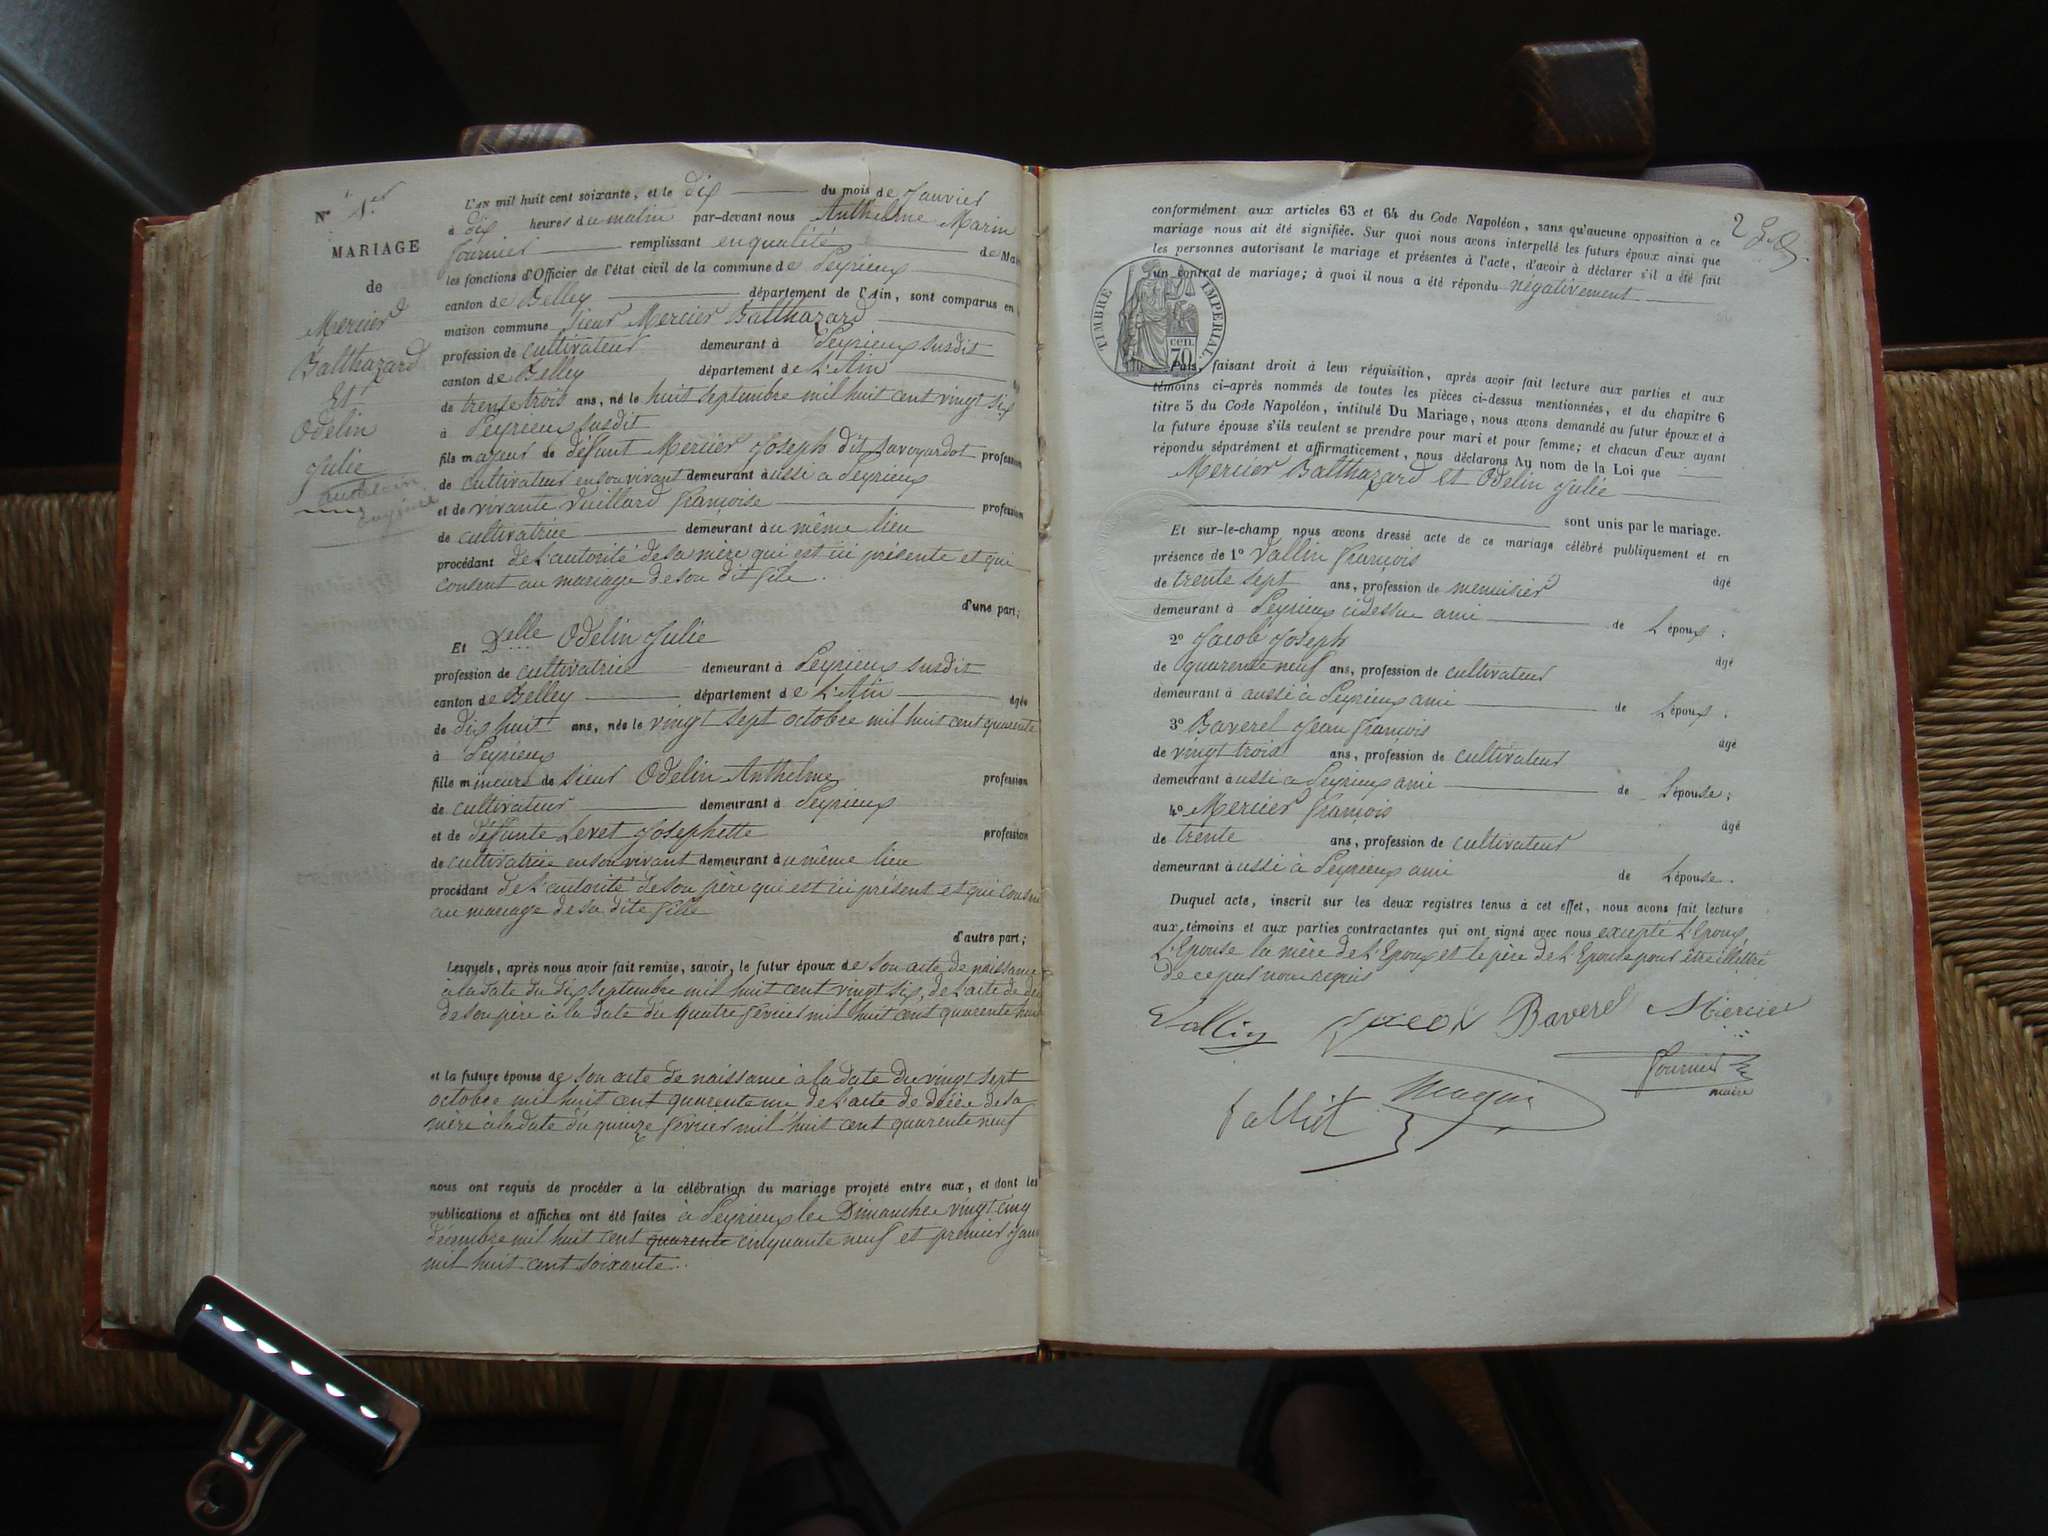 N° 1er
MARIAGE
de
Mercier
Balthazard
Et
Odelin
Julie
L'AN mil huit cent soixante, et le dix du mois de Janvier
à dix heures du matin par-devant nous Anthelme Marin
Fournier remplissant en qualité de Maire
les fonctions d'Officier de l'état civil de la commune de Peyrieux
canton de Belley département de l'Ain, sont comparus en
maison commune Sieur Mercier Balthazard
profession de cultivateur demeurant à Peyrieux susdit
canton de Belley département de L'Ain
de trente trois ans, né le huit septembre mil huit cent vingt six
à Peyrieux susdit
fils majeur de défunt Mercier Joseph dit Savoyardot profession
de cultivateur en son vivant demeurant aussi a Peyrieux
et de vivante Vuillard Françoise profession
de cultivatrice demeurant au même lieu
procédant de L'autorité de sa mère qui est ici présente et qui
consent au mariage de son dit fils.
d'une part;
Et Delle Odelin Julie
profession de cultivatrice demeurant à Peyrieux susdit
canton de Belley département de L'Ain agée
de dix huit ans, née le vingt sept octobre mil huit cent quarante
à Peyrieux
fille mineure de Sieur Odelin Anthelme profession
de cultivateur demeurant à Peyrieux
et de défunte Levet Josephette profession
de cultivatrice en son vivant demeurant au même lieu
procédant de L'autorité de son père qui est ici présent et qui consent
au mariage de sa dite fille
d'autre part;
Lesquels, après nous avoir fait remise, savoir, le futur époux de son acte de naissance
à la date du dix septembre mil huit cent vingt six, de L'acte de
de son père à la date du quatre février mil huit cent quarante
et la future épouse de son acte de naissance à la date du vingt sept
octobre mil huit cent quarante un de L'acte de décès de sa
mère à la date du quinze février mil huit cent quarante neuf
nous ont requis de procéder à la célébration du mariage projeté entre eux, et dont les
publications et affiches ont été faites à Peyrieux les Dimanches vingt cinq
décembre mil huit cent quarante cinquante neuf et premier Janv
mil huit cent soixante.
2
conformément aux articles 63 et 64 du Code Napoléon, sans qu'aucune opposition à ce
mariage nous ait été signifiée. Sur quoi nous avons interpellé les futurs époux ainsi que
les personnes autorisant le mariage et présentes à l'acte, d'avoir à déclarer s'il a été fait
un contrat de mariage; à quoi il nous a été répondu négativement
TIMBRE IMPERIAL
70 cen.
Puis, faisant droit à leur réquisition, après avoir fait lecture aux parties et aux
témoins ci-après nommés de toutes les pièces ci-dessus mentionnées, et du chapitre 6
titre 5 du Code Napoléon, intitulé Du Mariage, nous avons demandé au futur époux et à
la future épouse s'ils veulent se prendre pour mari et pour femme; et chacun d'eux ayant
répondu séparément et affirmativement, nous déclarons Au nom de la Loi que
Mercier Balthazard et Odelin Julie
sont unis par le mariage.
Et sur-le-champ nous avons dressé acte de ce mariage célébré publiquement et en
présence de 1° Vallin François
de trente sept ans, profession de menuisier âgé
demeurant à Peyrieux ci dessu ami de L'époux;
2° Jacob Joseph
de quarente neuf ans, profession de cultivateur âgé
demeurant à aussi à Peyrieux ami de L'époux;
3° Baverel Jean François
de vingt trois ans, profession de cultivateur âgé
demeurant aussi a Peyrieux ami de L'épouse;
4° Mercier François
de trente ans, profession de cultivateur âgé
demeurant aussi à Peyrieux ami de L'épouse.
Duquel acte, inscrit sur les deux registres tenus à cet effet, nous avons fait lecture
aux témoins et aux parties contractantes qui ont signé avec nous excepté L'Epoux
L'Epouse la mère de L'Epoux et le père de L'Epouse pour être illétré
de ce par nous requis
Vallin Jacob Baverel Mercier
Fournier
maire
Falliet Magnin